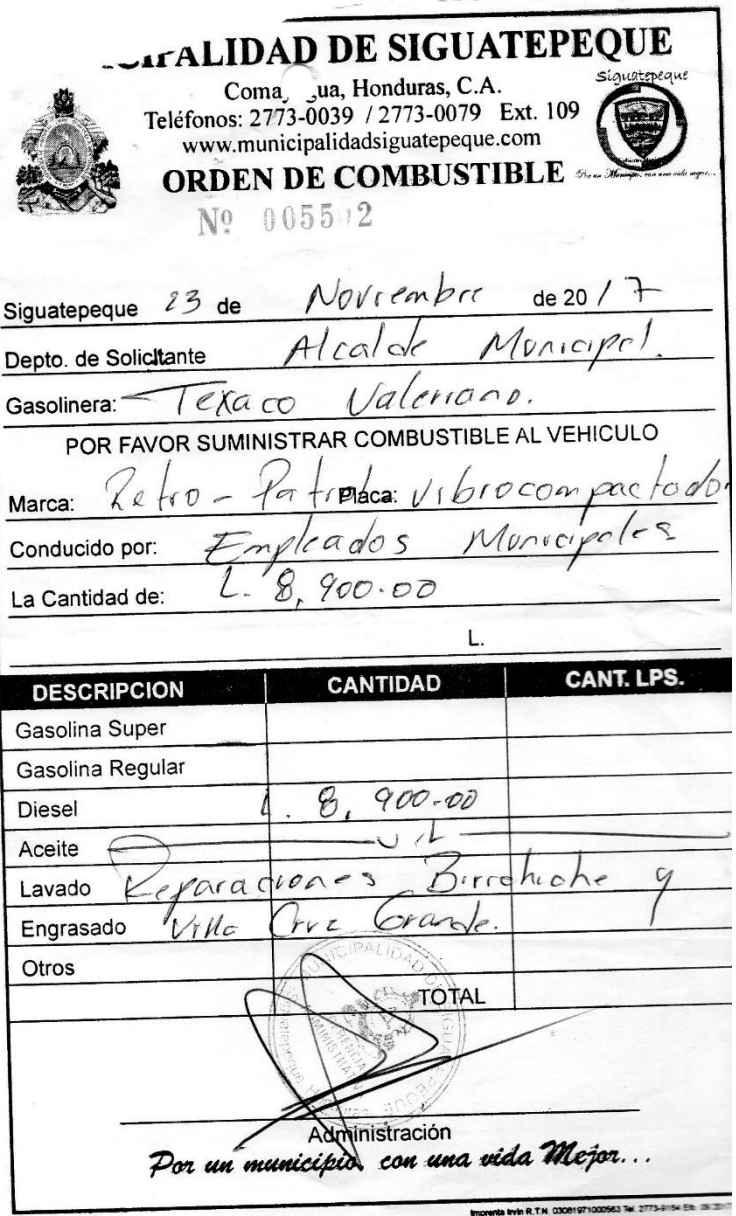 MUNICIPALIDAD DE SIGUATEPEQUE
Siguatepeque
Coma ua, Honduras, C.A.
Teléfonos: 2773-0039 / 2773-0079 Ext. 109
www.municipalidadsiguatepeque.com
ORDEN DE COMBUSTIBLE
Nº
Siguatepeque 23 de Noviembre de 2017
Depto. de Solicitante Alcalde Municipal.
Gasolinera: Texaco Valeriano.
POR FAVOR SUMINISTRAR COMBUSTIBLE AL VEHICULO
Marca: Retro - Patrol Placa: Vibrocompactador
Conducido por: Empleados Municipales
La Cantidad de: L. 8,900.00
L.
DESCRIPCION CANTIDAD CANT. LPS.
Gasolina Super
Gasolina Regular
Diesel L. 8,900.00
Aceite
Lavado Reparaciones y
Engrasado Villa Cruz Grande.
Otros
TOTAL
Administración
Por un municipio, con una vida Mejor...
Imprenta Irvin R.T.N. 03081971000563 Tel.